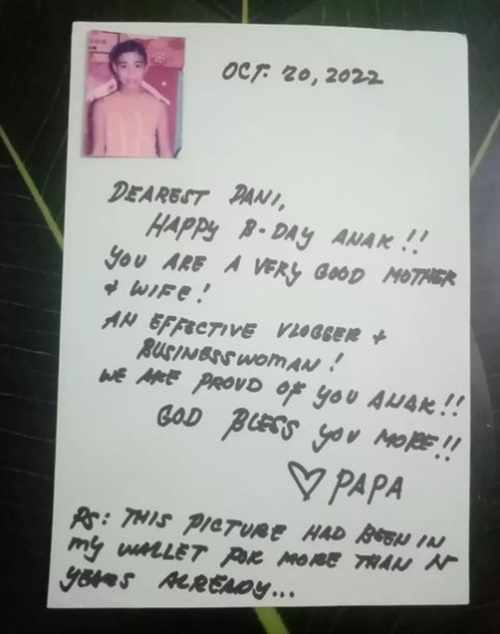 OCT. 20, 2022
DEAREST DANI,
HAPPY B-DAY ANAK!!
YOU ARE A VERY GOOD MOTHER
+ WIFE!
AN EFFECTIVE VLOGGER +
BUSINESSWOMAN!
WE ARE PROUD OF YOU ANAK!!
GOD BLESS YOU MORE!!
♡ PAPA
PS: THIS PICTURE HAD BEEN IN
MY WALLET FOR MORE THAN
YEARS ALREADY...